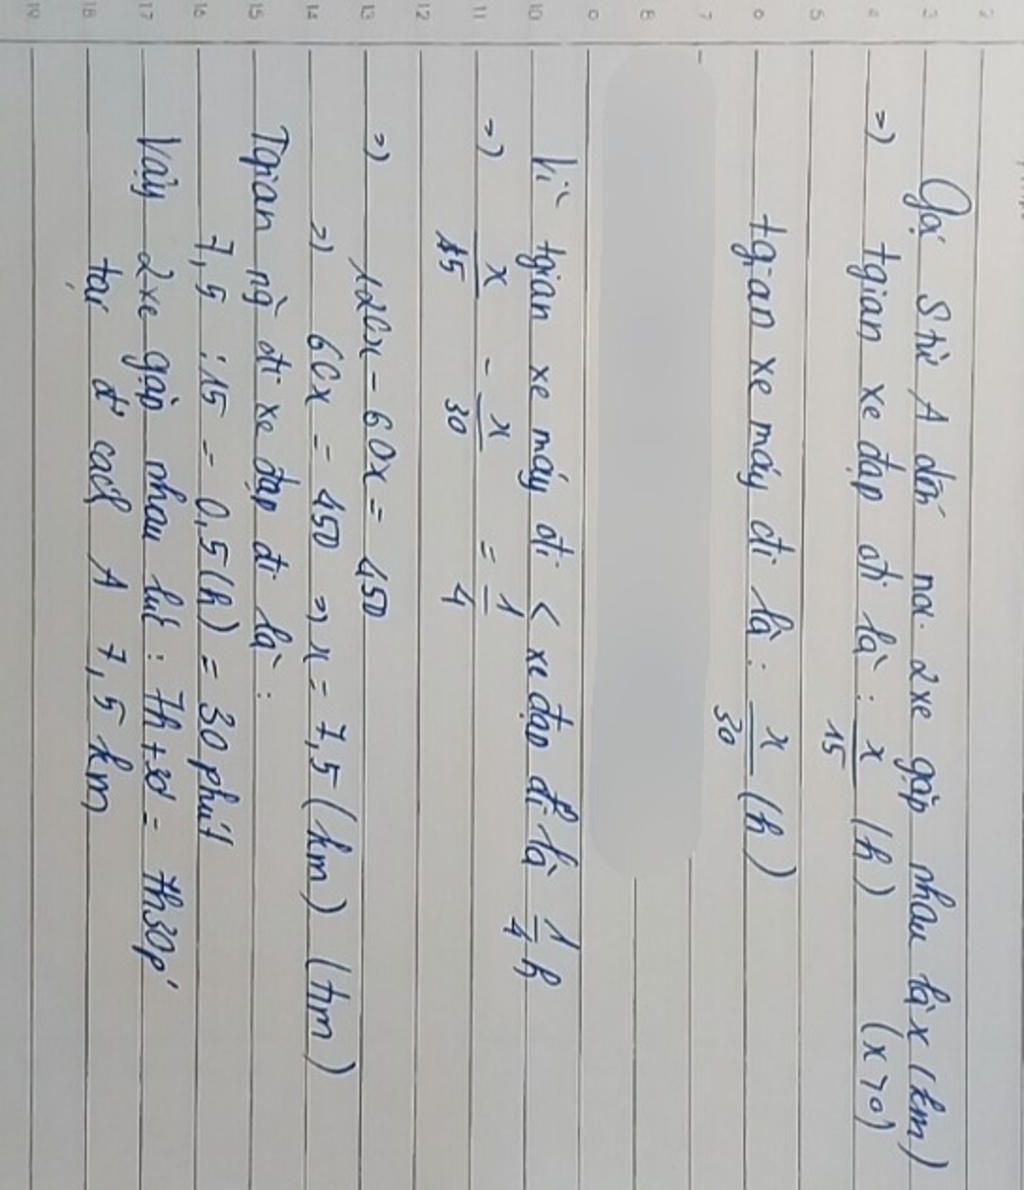 Gọi S từ A đến nơi 2 xe gặp nhau là x (km)
(x > 0)
=) tgian xe đạp đi là : x/15 (h)
tgian xe máy đi là : x/30 (h)
Vì tgian xe máy đi < xe đạp đi là 1/4 h
=) x/15 - x/30 = 1/4
=) 120x - 60x = 450
=) 60x = 450 => x = 7,5 (km) (tm)
Tgian ng` đi xe đạp đi là :
7,5 : 15 = 0,5 (h) = 30 phút
Vậy 2 xe gặp nhau lúc : 7h + 30' = 7h30p'
tại đ' cách A 7,5 km